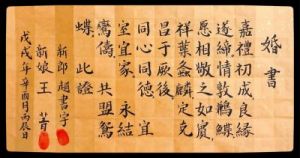 婚書
嘉禮初成良緣
遂締情敦鶼鰈
願相敬之如賓
祥葉螽麟定克
昌于厥後
同心同德 宜
室宜家 永结
鸞儔 共盟鴛
蝶 此證
新郎 趙書宇
新娘 王 菁
戊戌年辛酉月丙辰日